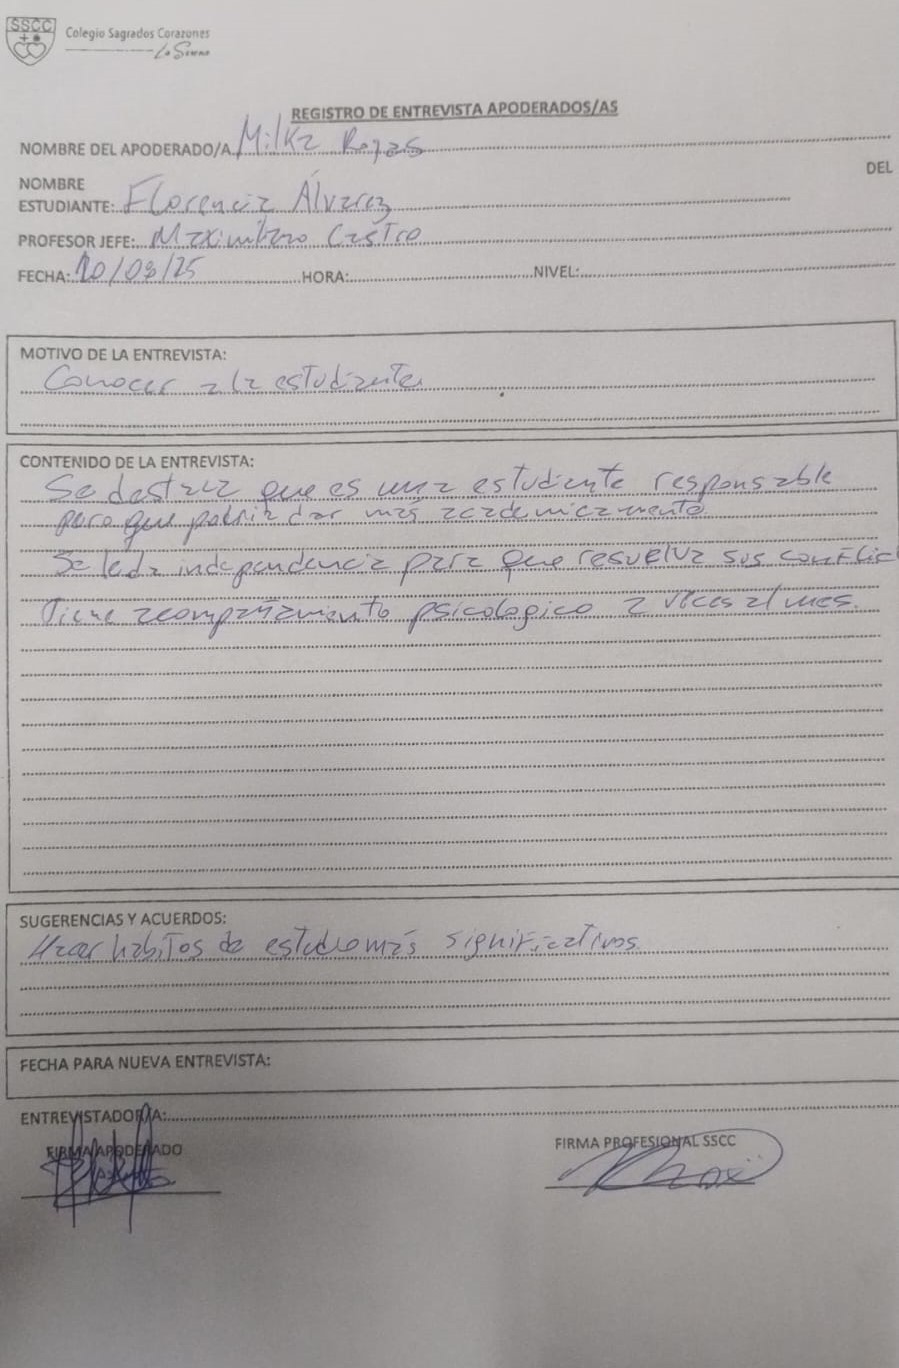 SSCC
Colegio Sagrados Corazones
La Serena
REGISTRO DE ENTREVISTA APODERADOS/AS
NOMBRE DEL APODERADO/A Milka Rojas
NOMBRE DEL
ESTUDIANTE: Florencia Álvarez
PROFESOR JEFE: Maximiliano Castro
FECHA: 20/03/25 HORA: NIVEL:
MOTIVO DE LA ENTREVISTA:
Conocer a la estudiante
CONTENIDO DE LA ENTREVISTA:
Se destaca que es una estudiante responsable
pero que podria dar más academicamente
Se le da independencia para que resuelva sus conflic
Tiene acompañamiento psicologico 2 veces al mes.
SUGERENCIAS Y ACUERDOS:
Hacer habitos de estudio más significativos
FECHA PARA NUEVA ENTREVISTA:
ENTREVISTADOR/A:
FIRMA APODERADO
FIRMA PROFESIONAL SSCC